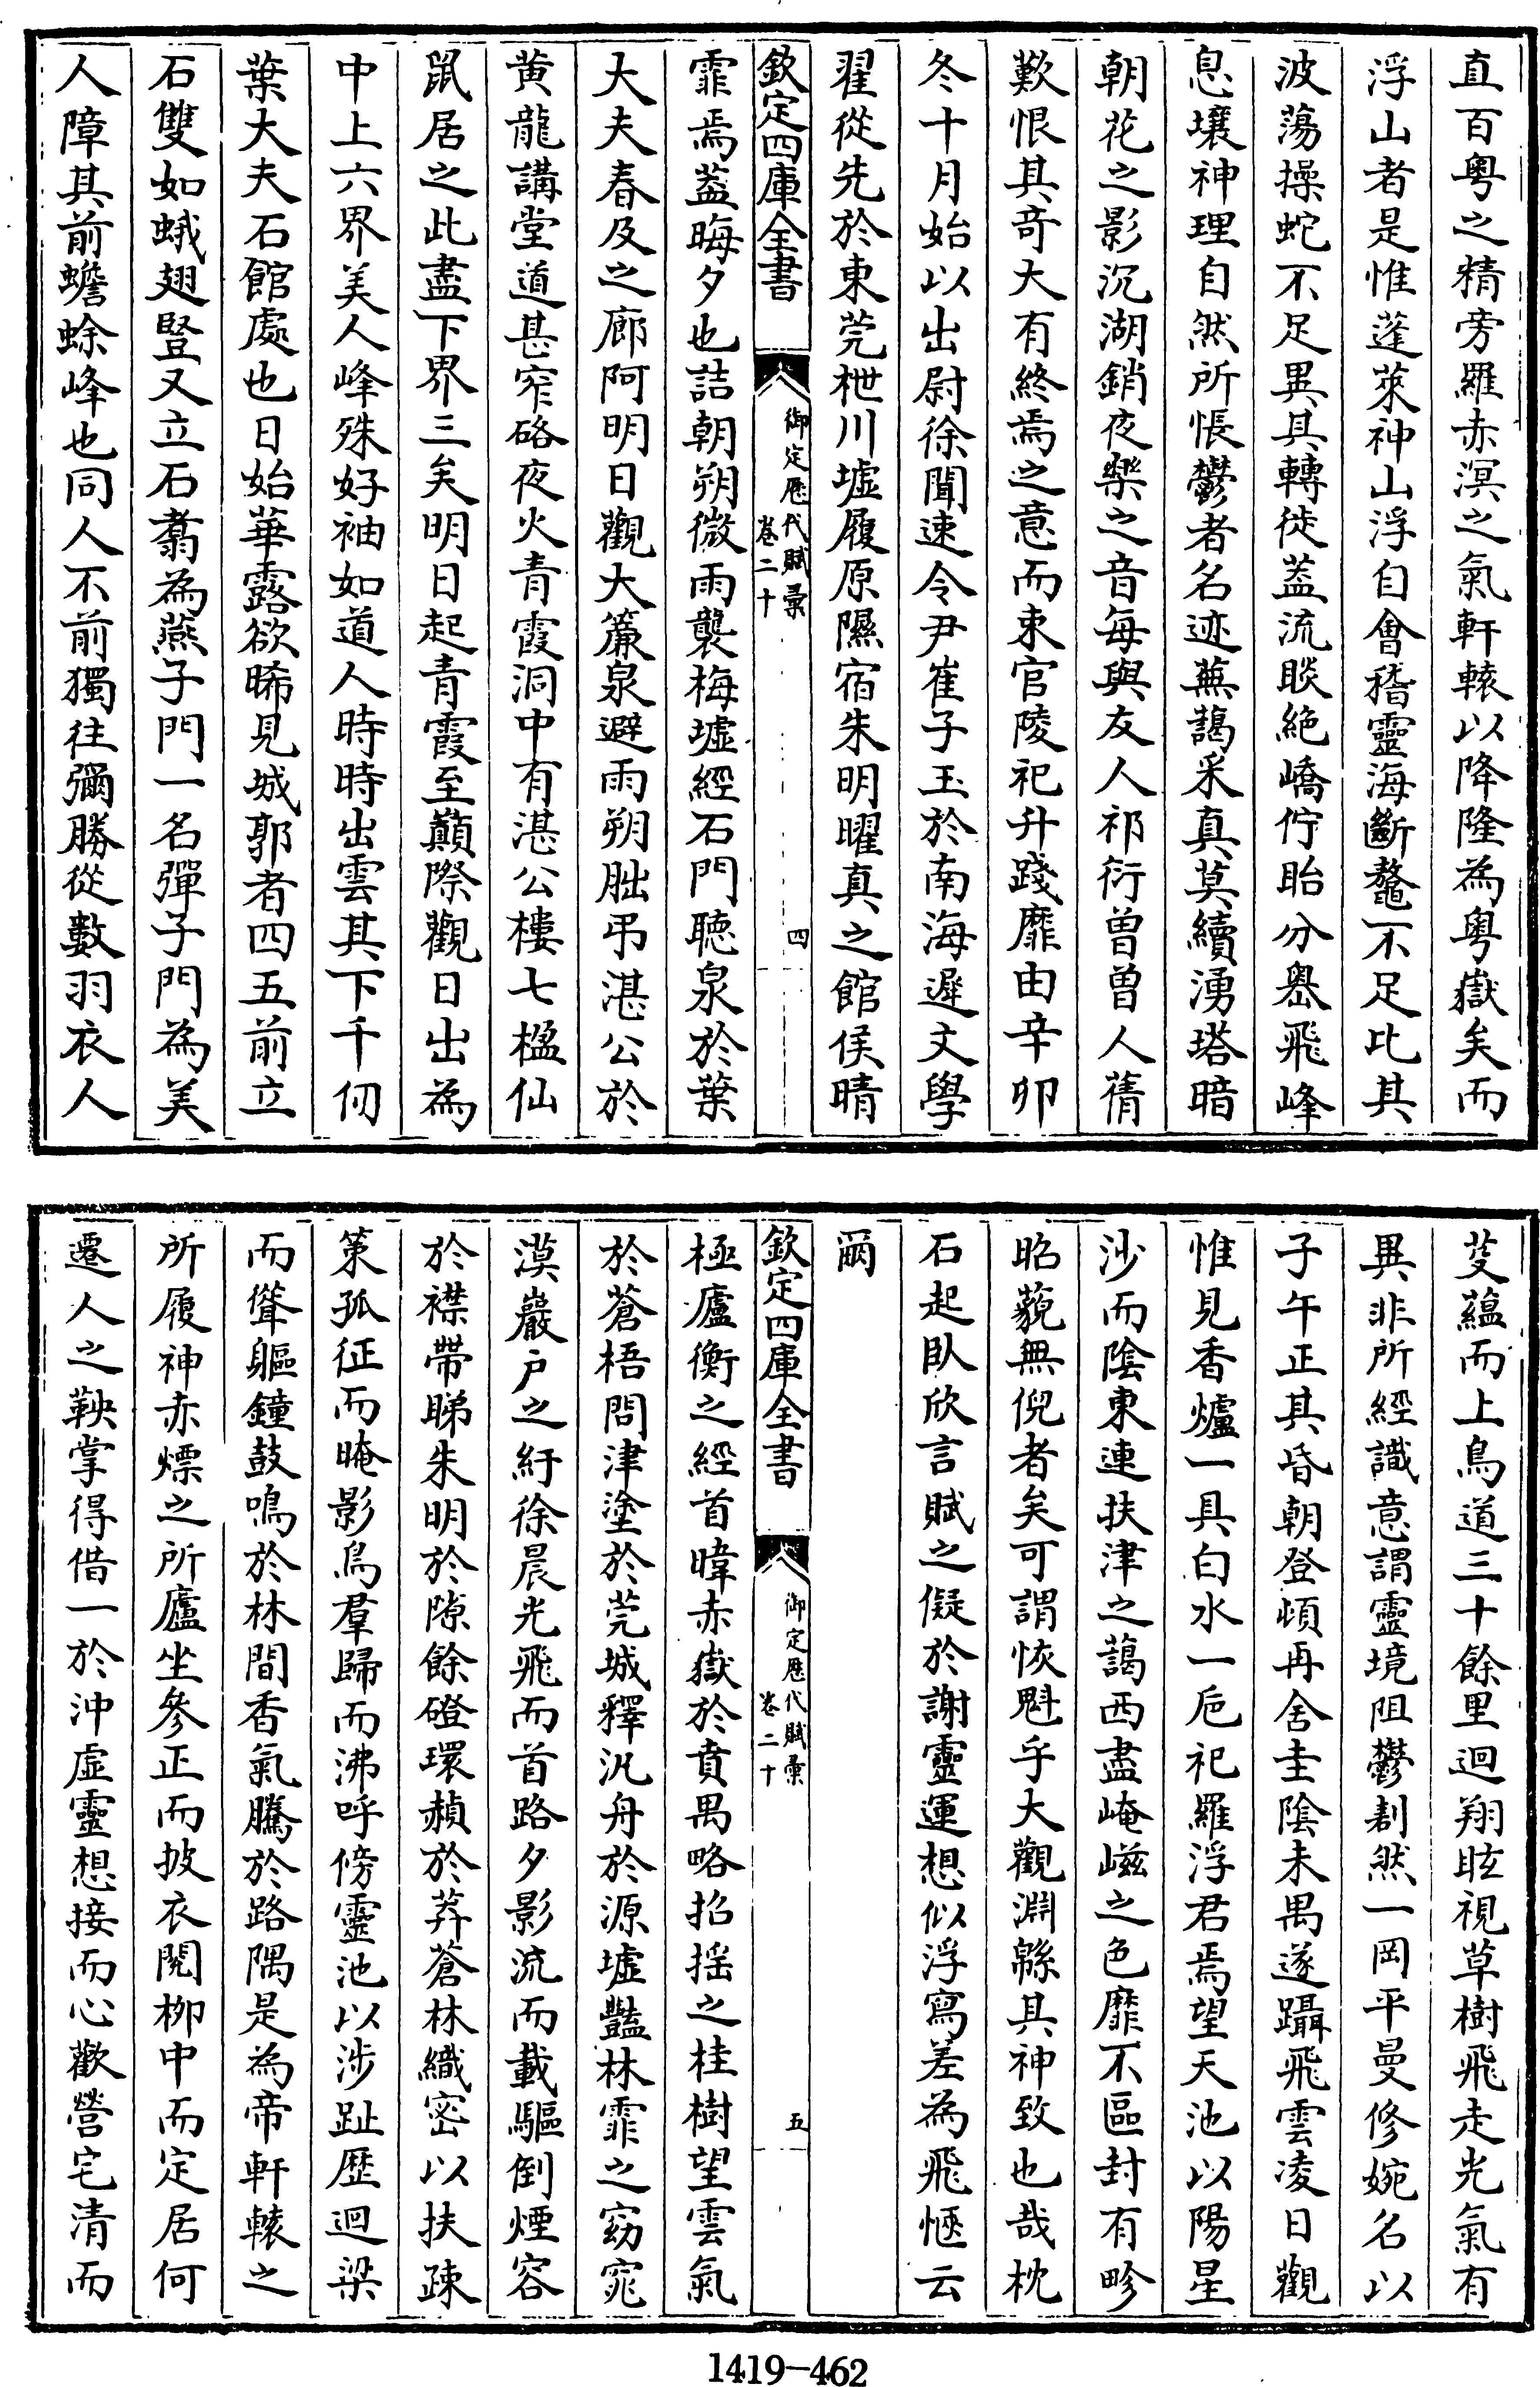 直百粤之精旁羅赤溟之氣軒轅以降隆為粤嶽矣而
浮山者是惟蓬萊神山浮自會稽靈海斷鼇不足比其
波蕩操蛇不足異其轉徙葢流睒絶嶠佇眙分嶴飛峰
息壤神理自然所悵鬱者名迹蕪藹采真莫續湧塔暗
朝花之影沉湖銷夜樂之音每與友人祁衍曾曾人蒨
歎恨其竒大有終焉之意而束官陵祀升踐靡由辛卯
冬十月始以出尉徐聞速令尹崔子玉於南海遲文學
翟從先於東莞枻川墟履原隰宿朱明曜真之館侯晴
欽定四庫全書
御定歷代賦彙
卷二十
四
霏焉葢晦夕也詰朝朔微雨襲梅墟經石門聽泉於葉
大夫春及之廊阿明日觀大簾泉避雨朔朏弔湛公於
黄龍講堂道甚窄硌夜火青霞洞中有湛公樓七楹仙
鼠居之此盡下界三矣明日起青霞至巔際觀日出為
中上六界美人峰殊好袖如道人時時出雲其下千仞
葉大夫石館處也日始華露欲晞見城郭者四五前立
石雙如蛾翅豎又立石翥為燕子門一名彈子門為美
人障其前蟾蜍峰也同人不前獨往彌勝從數羽衣人
芟蘊而上鳥道三十餘里迴翔眩視草樹飛走光氣有
異非所經識意謂靈境阻鬱剨然一岡平曼修婉名以
子午正其昏朝登頓再舍圭陰未禺遂躡飛雲凌日觀
惟見香爐一具白水一巵祀羅浮君焉望天池以陽星
沙而陰東連扶津之藹西盡崦嵫之色靡不區封有畛
昭藐無倪者矣可謂恢魁乎大觀淵緜其神致也哉枕
石起臥欣言賦之儗於謝靈運想似浮寫差為飛愜云
爾
欽定四庫全書
御定歷代賦彙
卷二十
五
極廬衡之經首暐赤嶽於賁禺略招摇之桂樹望雲氣
於蒼梧問津塗於莞城釋汎舟於源墟豔林霏之窈窕
漠巖户之紆徐晨光飛而首路夕影流而載驅倒煙容
於襟帶睇朱明於隙餘磴環頳於莽蒼林織密以扶疎
策孤征而晻影烏羣歸而沸呼傍靈池以涉趾歷迴梁
而聳軀鐘鼓鳴於林間香氣騰於路隅是為帝軒轅之
所履神赤熛之所廬坐參正而披衣閱柳中而定居何
遷人之鞅掌得借一於沖虛靈想接而心歡營宅清而
1419-462